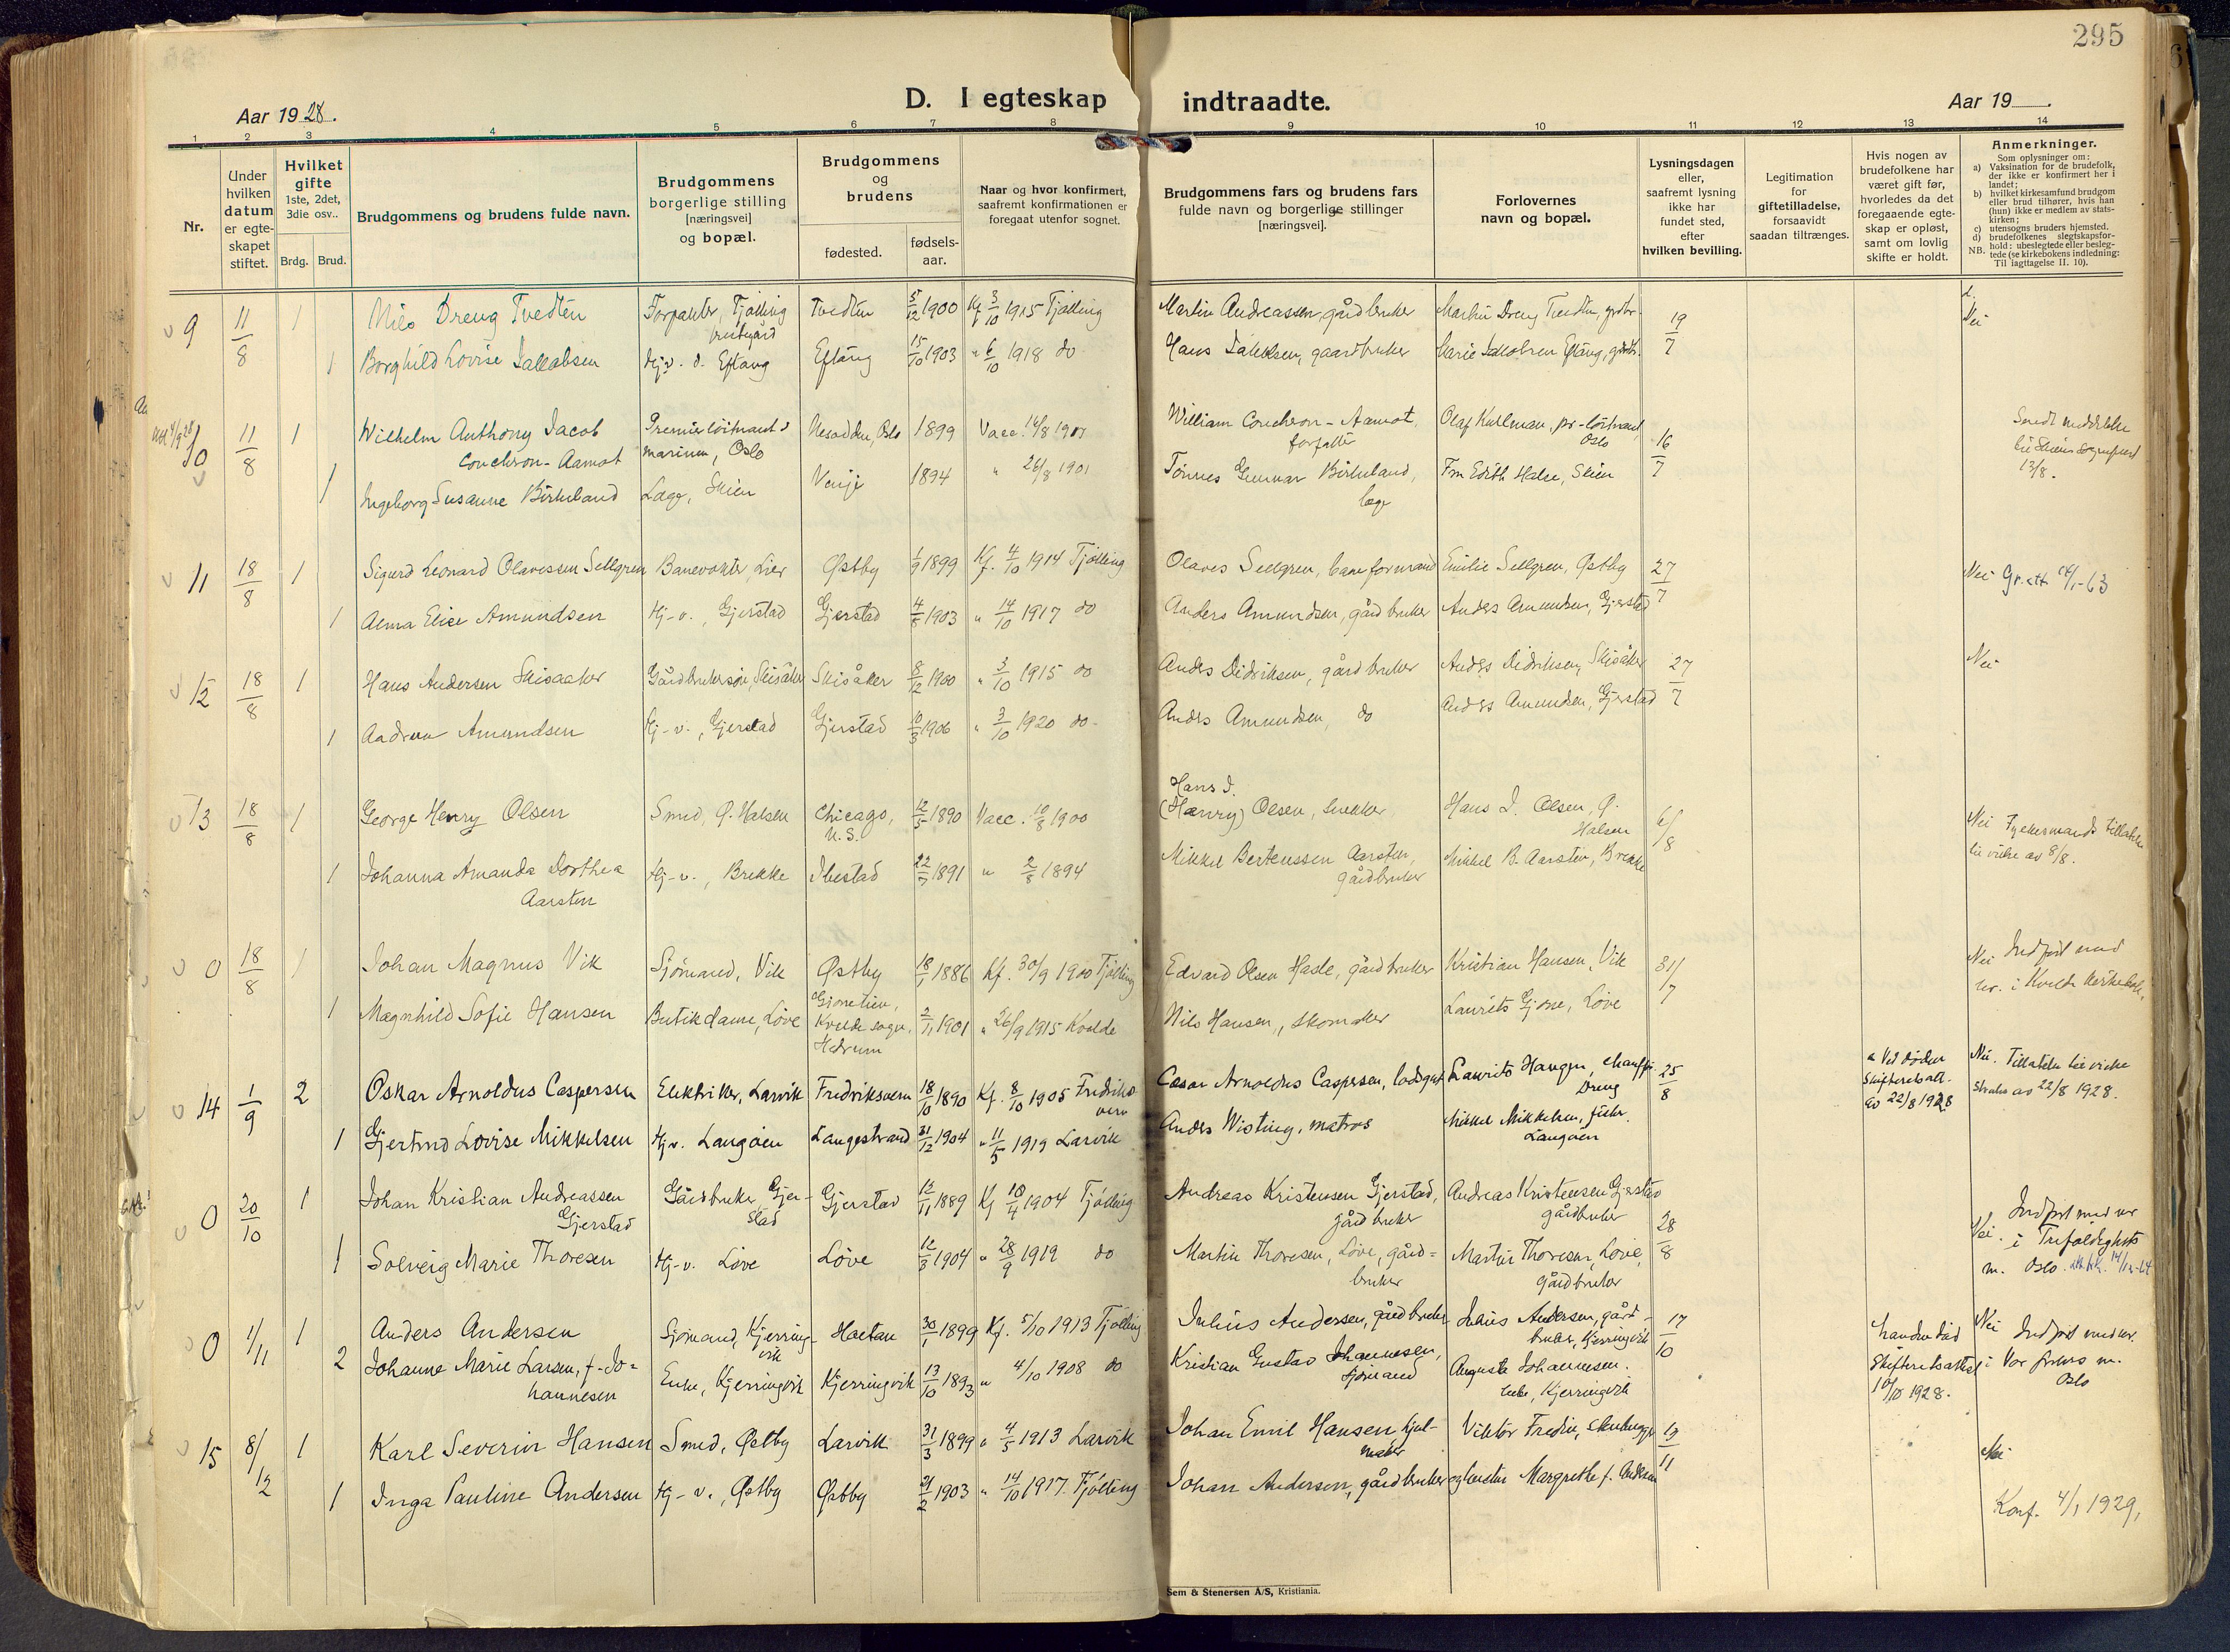 295
Aar 1928.
D. I egteskap indtraadte.
Aar 19
1 2 3 4 5 6 7 8 9 10 11 12 13 14
Nr.
Under hvilken datum er egteskapet stiftet.
Hvilket gifte 1ste, 2det, 3die osv..
Brdg. Brud.
Brudgommens og brudens fulde navn.
Brudgommens borgerlige stilling [næringsvei] og bopæl.
Brudgommens og brudens
fødested. fødselsaar.
Naar og hvor konfirmert, saafremt konfirmationen er foregaat utenfor sognet.
Brudgommens fars og brudens fars fulde navn og borgerlige stillinger [næringsvei].
Forlovernes navn og bopæl.
Lysningsdagen eller, saafremt lysning ikke har fundet sted, efter hvilken bevilling.
Legitimation for giftetilladelse, forsaavidt saadan tiltrænges.
Hvis nogen av brudefolkene har været gift før, hvorledes da det foregaaende egteskap er opløst, samt om lovlig skifte er holdt.
Anmerkninger.
Som oplysninger om:
a) Vaksination for de brudefolk, der ikke er konfirmert her i landet;
b) hvilket kirkesamfund brudgom eller brud tilhører, hvis han (hun) ikke er medlem av statskirken;
c) utensogns bruders hjemsted.
d) brudefolkenes slegtskapsforhold: ubeslegtede eller beslegtede (se kirkebokens indledning:
NB. Til iagttagelse II. 10).
9 11/8 1 Nils Dreng Tvedten Forpakter, Tjølling prestegård Tvedten 5/12 1900 Kf 3/10 1915 Tjølling Martin Andreassen, gårdbruker Martin Dreng Tvedten, grdbr. 19/7 Nei
1 Borghild Lovise Jakobsen Hj.v. d. Eftang Eftang 15/10 1903 " 6/10 1918 do Hans Jakobsen, gaardbruker Marie Jakobsen Eftang, gårdb.
10 11/8 1 Wilhelm Anthony Jacob Coucheron-Aamot Premierløitnant i marinen, Oslo Nesodden, Oslo 1899 Vacc. 14/8 1901 William Coucheron-Aamot, forfatter Olaf Kullman, pr-löitnant Oslo 16/7 Sendt meddelelse til Skiens sogneprest 13/8.
1 Ingeborg Susanne Birkeland Læge, Skien Vinje 1894 " 26/8 1901 Tönnes Gunnar Birkeland, læge Frk Edith Halse, Skien
11 18/8 1 Sigurd Leonard Olavessen Sellgren Banevokter, Lier Østby 1/9 1899 Kf. 4/10 1914 Tjølling Olaves Sellgren, baneformand Emilie Sellgren, Østby 27/7 Nei
1 Alma Elise Amundsen Hj-v., Gjerstad Gjerstad 4/8 1903 " 14/10 1917 do Anders Amundsen, gårdbruker Anders Amundsen, Gjerstad
12 18/8 1 Hans Andersen Skisaaker Gårdbrukersøn, Skisåker Skisåker 8/12 1900 " 3/10 1915 do Anders Didriksen, gårdbruker Anders Didriksen, Skisåker 27/7 Nei
1 Andrea Amundsen Hj-v., Gjerstad Gjerstad 10/3 1906 " 3/10 1920 do- Anders Amundsen, do Anders Amundsen, Gjerstad
13 18/8 1 George Henry Olsen Smed, Ø. Halsen Chicago, U.S. 12/5 1890 Vacc. 10/8 1900 Hans J. (Henry) Olsen, snekker Hans J. Olsen, Ø. Halsen 6/8 Nei Fylkesmands tillatelse til vielse av 8/8.
1 Johanna Amanda Dorthea Aarsten Hj-v., Brekke Ibestad 22/7 1891 " 2/8 1894 Mikkel Berteussen Aarsten, gårdbruker Mikkel B. Aarsten, Brekke
0 18/8 1 Johan Magnus Vik Sjömand, Vik Østby 18/1 1886 Kf. 30/9 1900 Tjølling Edvard Olsen Hasle, gårdbruker Kristian Hansen, Vik 31/7 Nei Indført med nr. i Kvelde kirkebok.
1 Magnhild Sofie Hansen Butikdame, Löve Gjonelien, Kvelde sogn, Hedrum 2/11 1901 " 26/9 1915 Kvelde Nils Hansen, skomaker Laurits Gjone, Löve
14 1/9 2 Oskar Arnoldus Caspersen Elektriker, Larvik Fredriksvern 18/10 1890 Kf. 8/10 1905 Fredriksvern Cæsar Arnoldus Caspersen, Laurits Haugen, chauffør Dreng 25/8 Ved døden Skifteretsatt. av 22/8 1928 Nei. Tillatelse til vielse av 22/8 1928.
1 Gjertrud Lovise Mikkelsen Hj.v. Langöen Langestrand 31/12 1904 " 11/5 1919 Larvik Anders Wisting, matros Mikkel Mikkelsen, fisker. Langöen
0 20/10 1 Johan Kristian Andreassen Gjerstad Gårdbruker Gjerstad Gjerstad 12/11 1889 Kf 10/4 1904 Tjölling Andreas Kristensen Gjerstad, gårdbruker Andreas Kristensen Gjerstad gårdbruker 28/8 Nei. Indført med nr i Trefoldighets m. Oslo.
1 Solveig Marie Thoresen Hj-v. Löve Löve 12/3 1904 " 28/9 1919 do Martin Thoresen, Löve, gårdbruker Martin Thoresen, Löve, gårdbruker
0 1/11 1 Anders Andersen Sjömand, Kjerringvik Haetan 30/1 1899 Kf. 5/10 1913 Tjølling Julius Andersen, gårdbruker Julius Andersen, gårdbruker, Kjerringvik 17/10 Mandens död Skifteretsattest 10/10 1928. Nei Indført med nr. i Vor frelsers m. Oslo
2 Johanne Marie Larsen, f. Johannesen Enke, Kjerringvik Kjerringvik 13/10 1893 " 4/10 1908 do Kristian Gustav Johannesen, sjömand Augusta Johannesen. enke, Kjerringvik
15 8/12 1 Karl Severin Hansen Smed, Østby Larvik 31/3 1899 " 4/5 1913 Larvik Johan Emil Hansen hjulmaker Viktor Fredin, 19/11 Nei
1 Inga Pauline Andersen Hj-v., Østby Østby 21/2 1903 " 14/10 1917. Tjölling Johan Andersen, gårdbruker og hustru Margrethe f. Andersen
Konf. 4/1 1929,
Sem & Stenersen A/S, Kristiania.